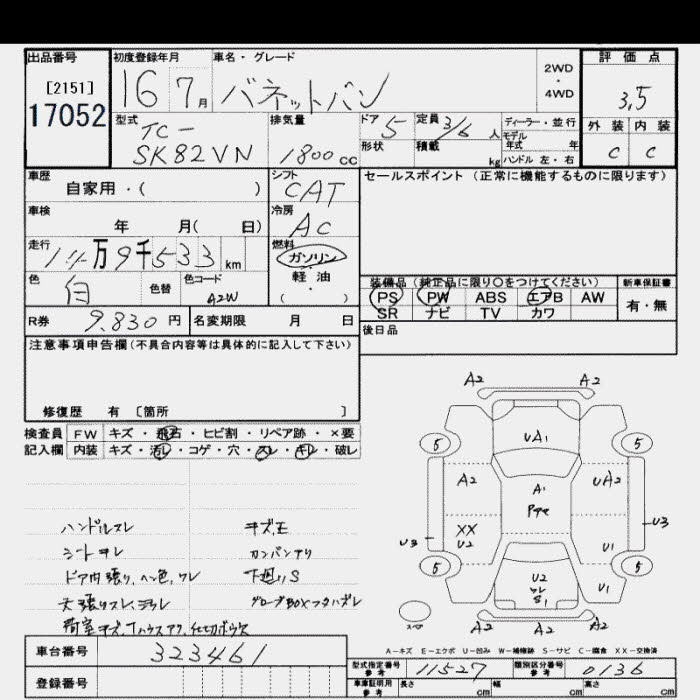 出品番号 初度登録年月 車名・グレード 評価点
[2151]
17052
16 7月 バネットバン
2WD
・
4WD
3.5
型式 TC-
SK82VN
排気量
1800 cc
ドア 5 定員 3/6 人
形状 積載 kg
ディーラー・並行
モデル年式 年
ハンドル 左・右
外装 内装
C C
車歴
自家用・( )
シフト
CAT
セールスポイント (正常に機能するものに限ります)
車検
年 月( 日)
冷房
AC
走行
14万9千533 km
燃料
ガソリン
・
軽油
・
( )
色 白 色替 色コード A2W
装備品(純正品に限り○をつけてください) 新車保証書
PS PW ABS エアB AW 有・無
SR ナビ TV カワ
R券 9,830 円 名変期限 月 日
後日品
注意事項申告欄(不具合内容等は具体的に記入して下さい)
修復歴 有 〔箇所 〕
検査員 FW キズ・飛石・ヒビ割・リペア跡・×要
記入欄 内装 キズ・汚レ・コゲ・穴・スレ・キレ・破レ
A2 A2
UA1
5 5
A2 A1 UA2
XX
U2
U3 U3
U1
5 5
U2
S1
U1
スペア
A2 A2 A2
ハンドルスレ キズ,モ
シートキレ カンバンナリ
ドア内張り,ヘン色,ワレ 下廻りS
天張りスレ,ヨゴレ グローブBOXフタハズレ
A-キズ E-エクボ U-凹み W-補修跡 S-サビ C-腐食 XX-交換済
車台番号 323461
型式指定番号 参考 11527 類別区分番号 参考 0136
登録番号
車庫証明用 参考 長さ cm 幅 cm 高さ cm